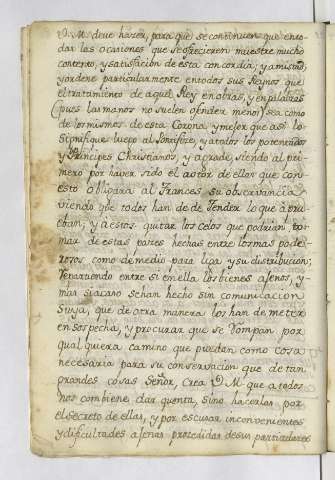 V. M. deve hazer, para que se continuen que en to-
das las ocasiones que se ofrecieren muestre mucho
contento, y satisfacion de esta concordia, y amistad,
y ordene particularmente en todos sus Reynos que
el tratamiento de aquel Rey en obras, y en palabras
(pues las manos no suelen ofender menos) sea como
de los mismos de esta Corona, y mejor que assi lo
signifique luego al Pontifice, y a todos los potentados
y Principes Christianos, y agrade, siendo al pri-
mero por haver sido el autor de ellas que con
esto obligara al Frances su observancia
viendo que todos han de defender lo que aprue
ban; y a estos quitar los celos que podrian to-
mar de estas pazes hechas entre los mas pode-
rosos como de medio para liga y su distribucion,
repartiendo entre si en ella los bienes agenos, y
mas si acaso se han hecho sin comunicacion
suya, que de otra manera los han de meter
en sospecha, y procurar que se rompan por
qualquiera camino que puedan como cosa
necesaria para su conservacion que de tan
grandes cosas Señor, crea V. M. que a todos
nos combiene dar quenta, sino hacerlas por
el secreto de ellas, y por escusar inconvenientes
y dificultades agenas procedidas de sus particulares